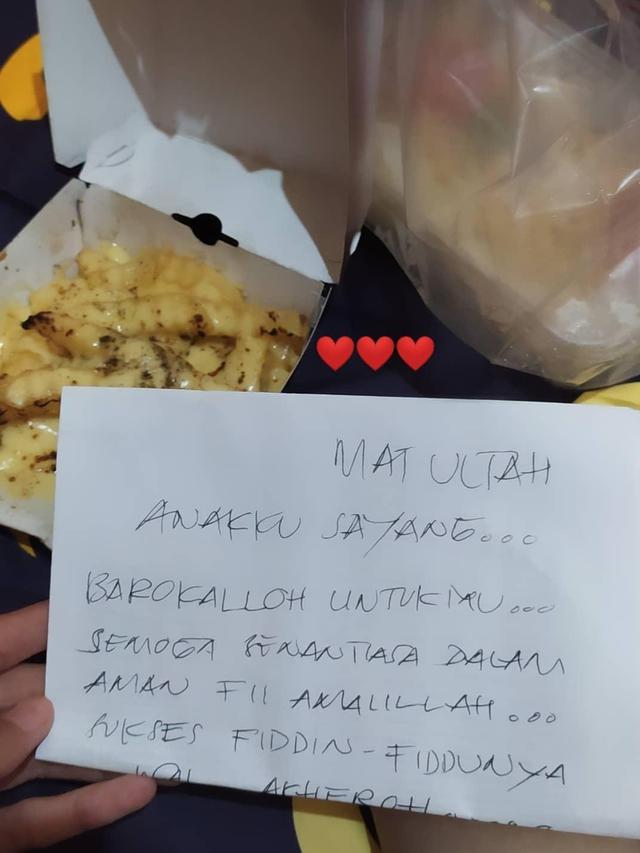 MAT ULTAH
ANAKKU SAYANG...
BAROKALLOH UNTUKMU...
SEMOGA SENANTIASA DALAM
AMAN FII AMALILLAH...
SUKSES FIDDIN-FIDDUNYA
WAL AKHEROH....